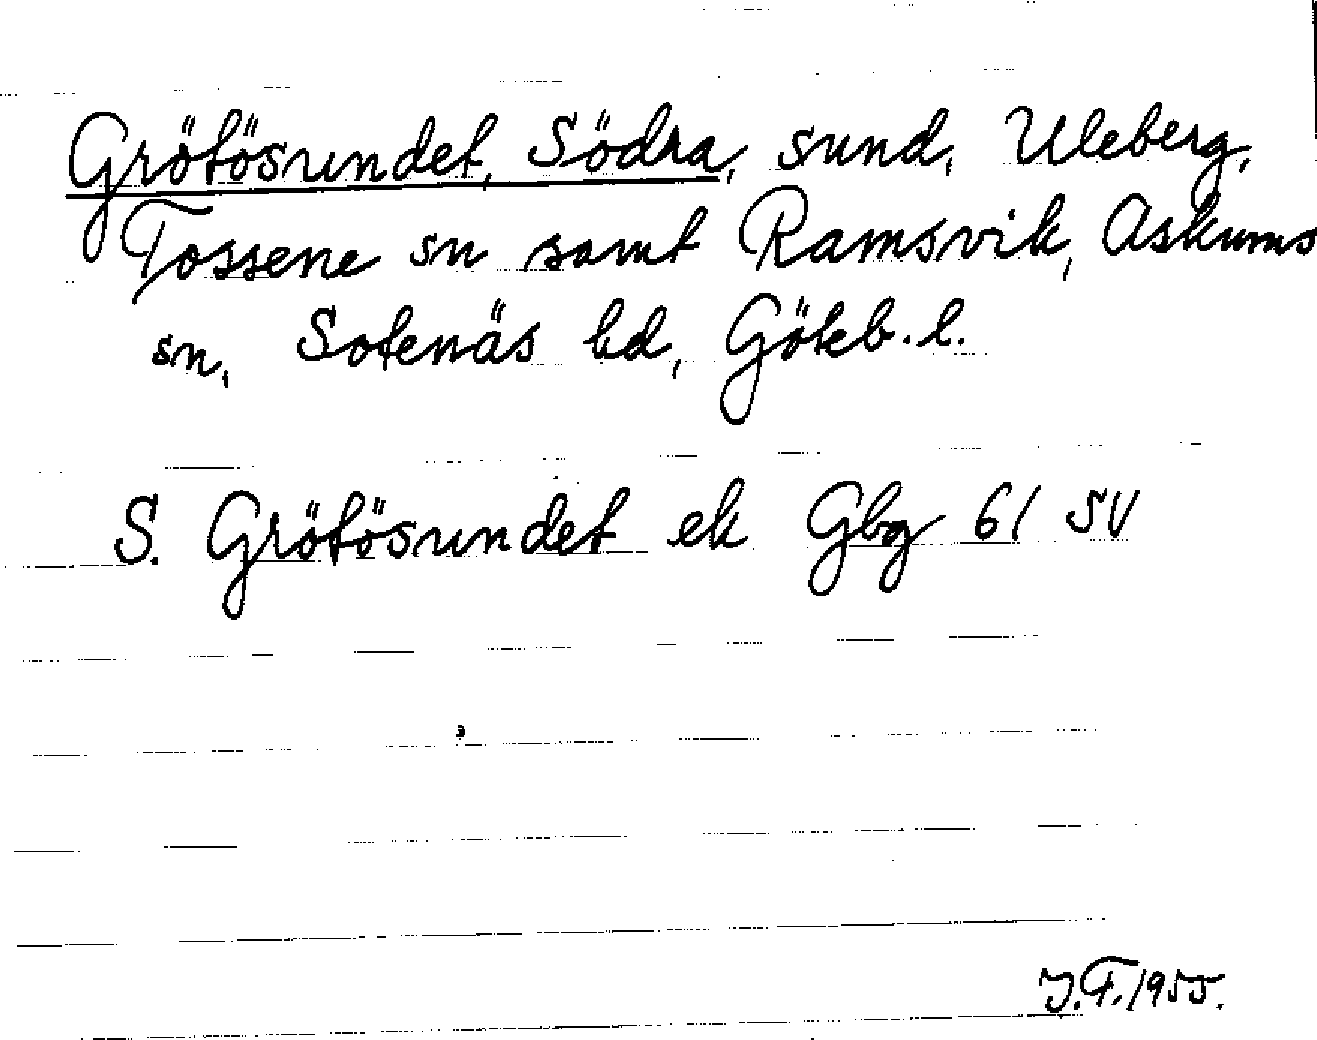 Grötösundet, Södra, sund, Uleberg,
Tossene sn samt Ramsvik, Askums
sn, Sotenäs hd, Göteb. l.
S. Grötösundet ek Gbg 61 SV
J.F. 1955.